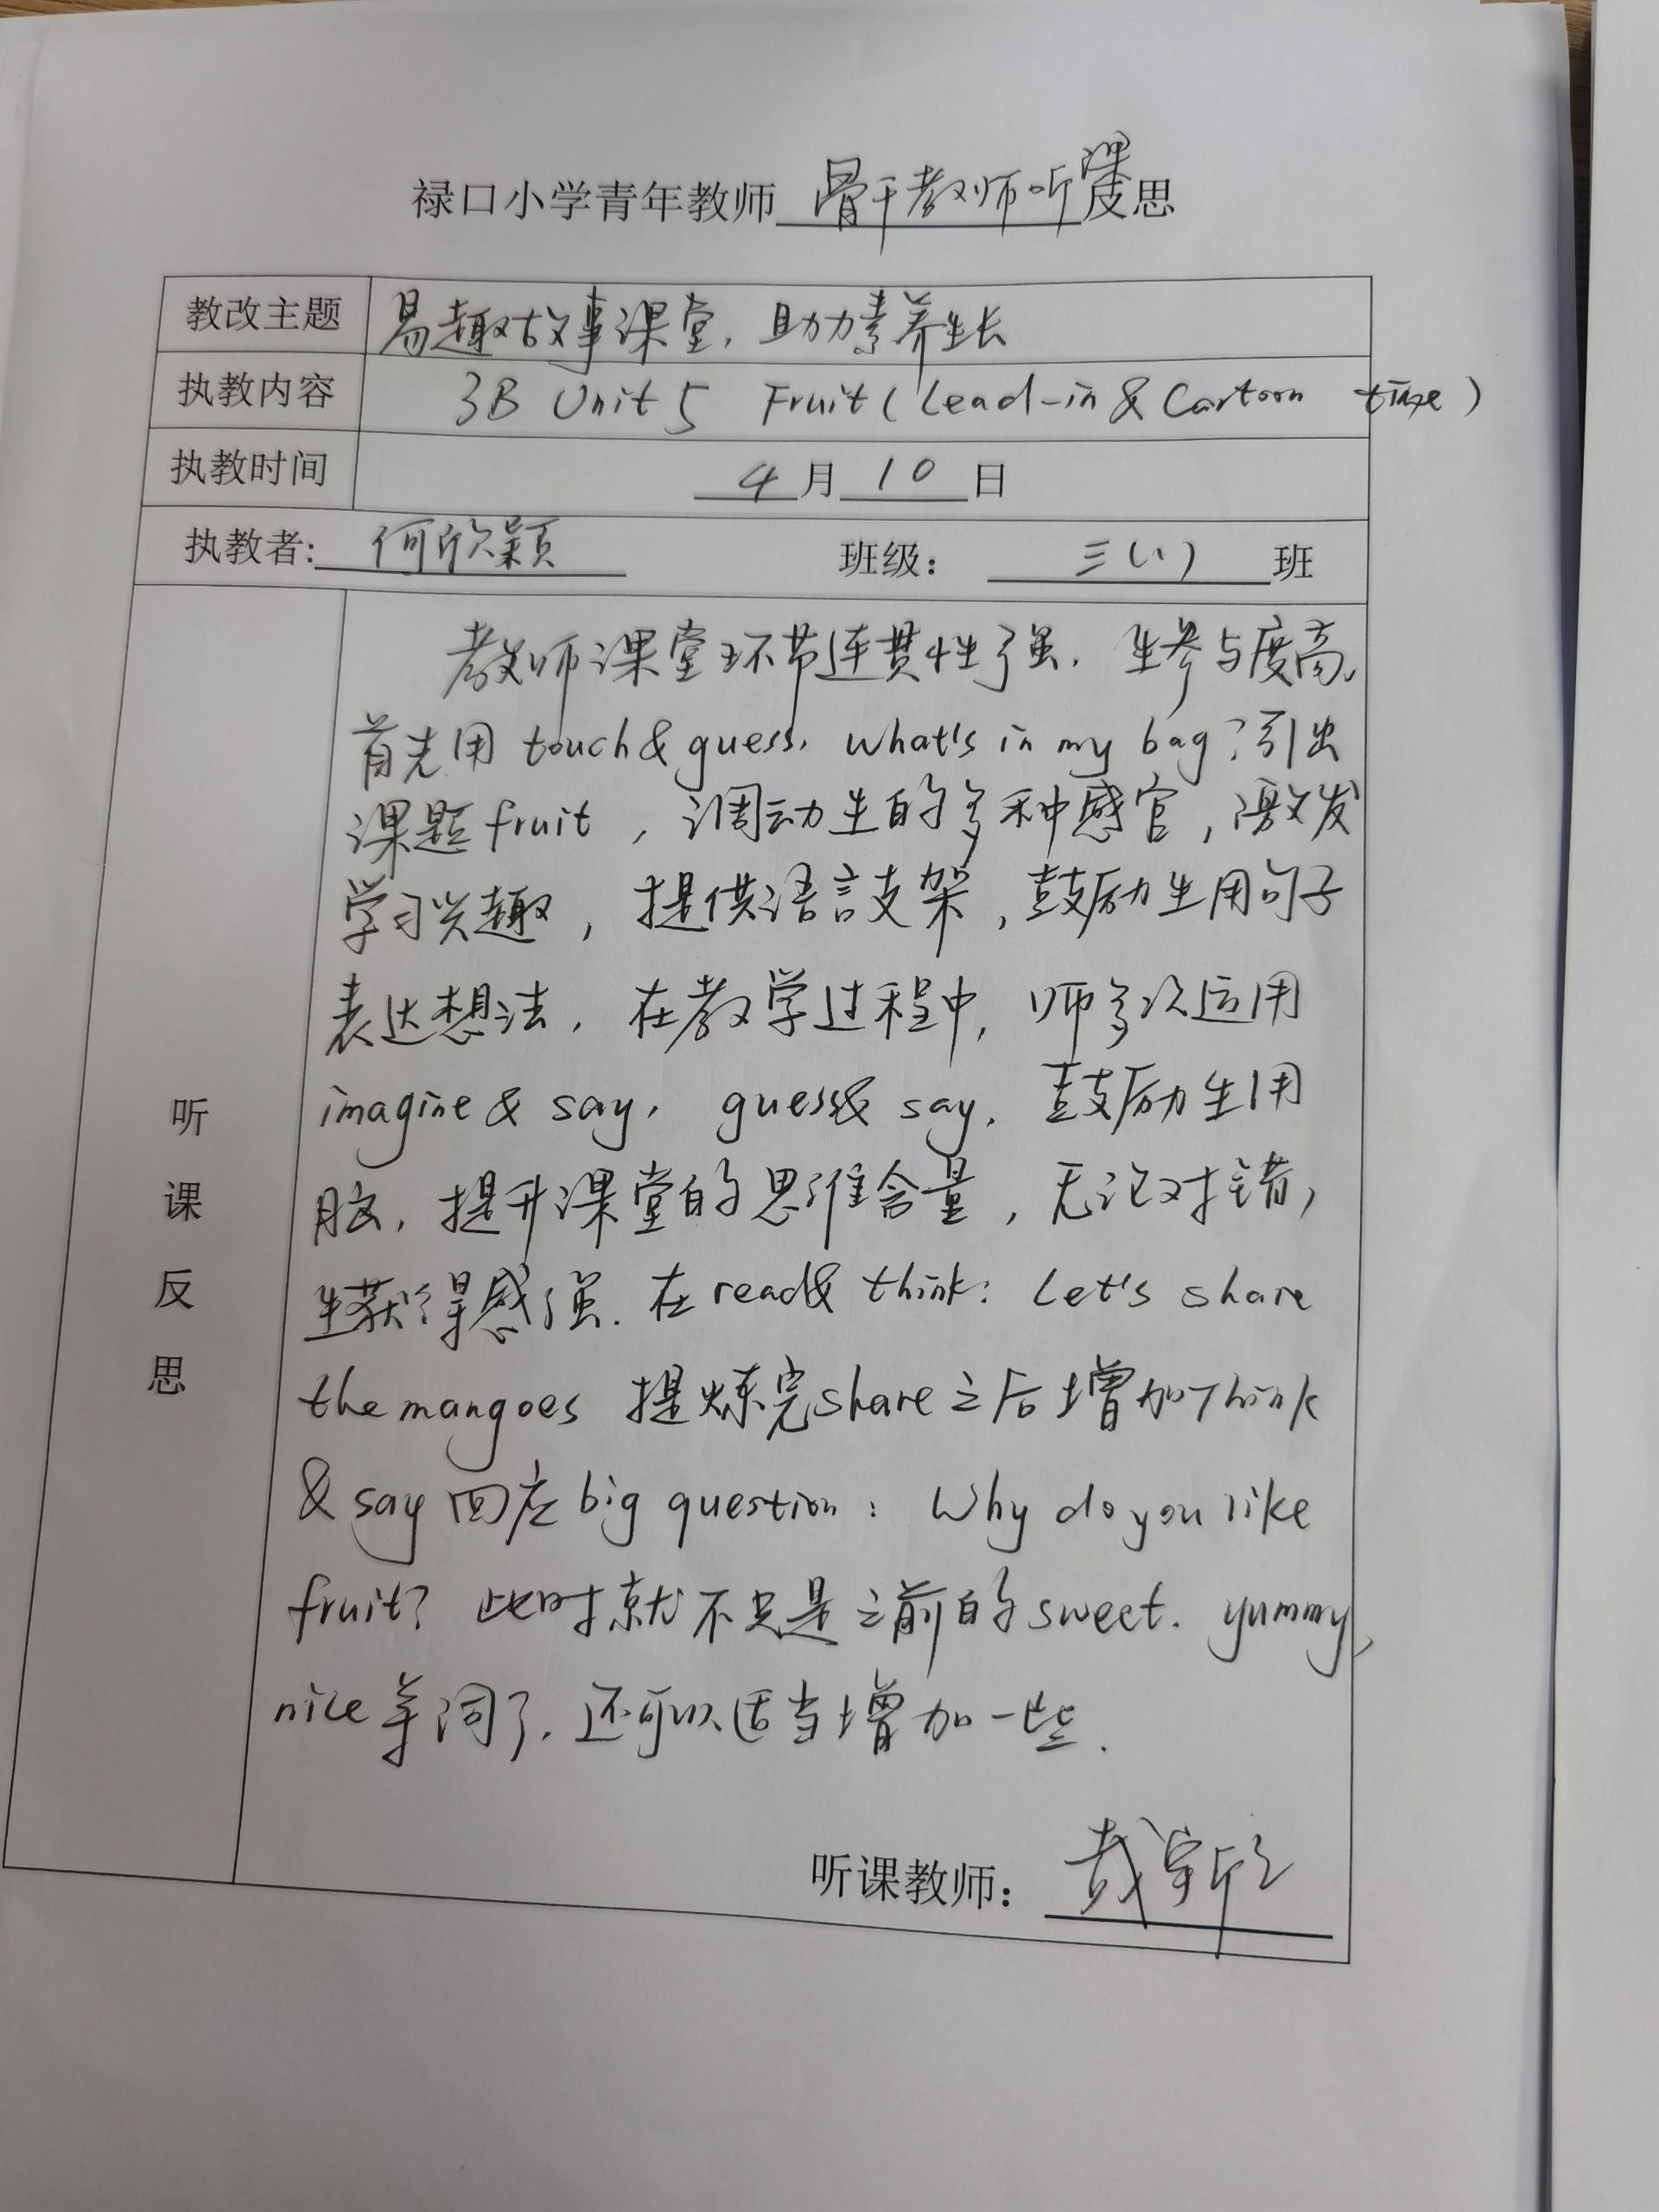 禄口小学青年教师 骨干教师听课反思
教改主题 易趣故事课堂，助力素养生长
执教内容 3B Unit 5 Fruit (Lead-in & Cartoon time)
执教时间 4月10日
执教者: 何欣颖 班级: 三(1)班
听课反思
教师课堂环节连贯性强，生参与度高，
首先用 touch & guess, What's in my bag? 引出
课题 fruit ，调动生的多种感官，激发
学习兴趣，提供语言支架，鼓励生用句子
表达想法，在教学过程中，师多次运用
imagine & say, guess & say, 鼓励生用
脑，提升课堂的思维含量，无论对错，
生获得感强. 在 read & think: Let's share
the mangoes 提炼完 share 之后增加 Think
& say 回应 big question: Why do you like
fruit? 此时就不只是之前的 sweet. yummy,
nice 等词了，还可以适当增加一些.
听课教师: